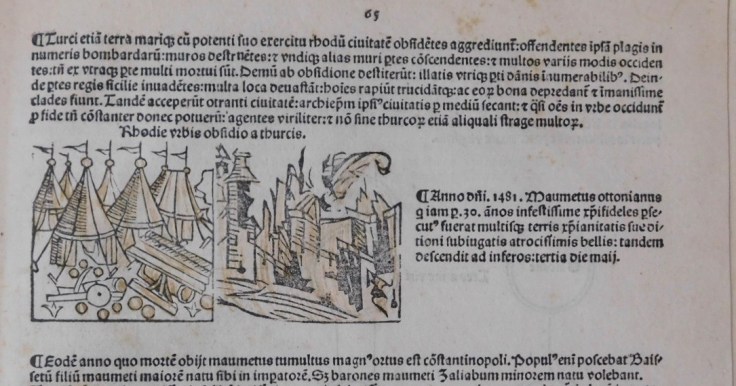 65
¶Turci etiā terra mariq; cū potenti suo exercitu rhodū ciuitatē obsidētes aggrediunt᷑: offendentes ipsā plagis in
numeris bombardarū: muros destruētes: ⁊ vndiq; alias muri ꝑtes cōscendentes: ⁊ multos variis modis occiden
tes: tn̄ ex vtraq; ꝑte multi mortui sūt. Demū ab obsidione destiterūt: illatis vtriq; ꝑti dānis īnumerabilibꝰ. Dein-
de ꝑtes regis sicilie inuadētes: multa loca deuastāt: hoīes rapiūt trucidātq; ac eoꝝ bona depredant᷑ ⁊ īmanissime
clades fiunt. Tandē acceperūt otranti ciuitatē: archiep̄m ipsiꝰ ciuitatis ꝑ mediū secant: ⁊ q̄si oēs in vrbe occidunt
ꝓ fide tn̄ cōstanter donec potuerū᷑ agentes viriliter: ⁊ nō sine thurcoꝝ etiā aliquali strage multoꝝ.
Rhodie vrbis obsidio a thurcis.
¶Anno dn̄i. 1481. Maumetus ottonianus
q iam ꝑ. 30. ānos infestissime xp̄ifideles ꝑse-
cutꝰ fuerat multisq; terris xp̄ianitatis sue di-
tioni subiugatis atrocissimis bellis: tandem
descendit ad inferos: tertia die maij.
¶Eodē anno quo mortē obijt maumetus tumultus magnꝰ ortus est cōstantinopoli. Populꝰ enī poscebat Baiss-
setū filiū maumeti maiorē natu sibi in impatorē. Sꝫ barones maumeti Zaliabum minorem natu volebant.